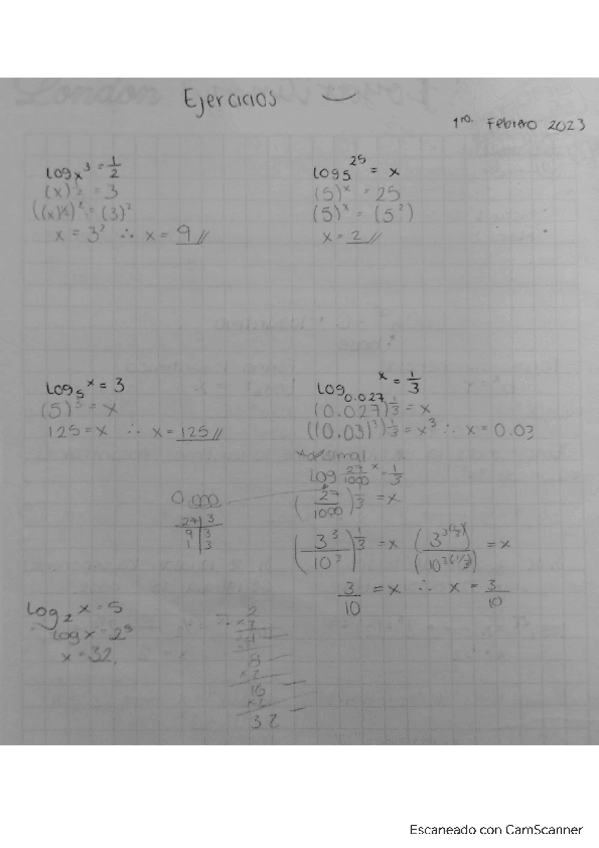 Ejercicios
1ro. Febrero 2023
log x 3 = 1/2
(x)^1/2 = 3
((x)^1/2)^2 = (3)^2
x = 3^2 ∴ x = 9 //
log 5 25 = x
(5)^x = 25
(5)^x = (5^2)
x = 2 //
log 5 x = 3
(5)^3 = x
125 = x ∴ x = 125 //
log 0.027 x = 1/3
(0.027)^1/3 = x
((0.03)^3)^1/3 = x^3 ∴ x = 0.03
decimal
log 27/1000 x = 1/3
(27/1000)^1/3 = x
0.000
27 | 3
9 | 3
1 | 3
(3^3/10^3)^1/3 = x
(3^3(1/3)/10^3(1/3)) = x
3/10 = x ∴ x = 3/10
log 2 x = 5
log x = 2^5
x = 32
2
4
8
×2
16
×2
32
Escaneado con CamScanner